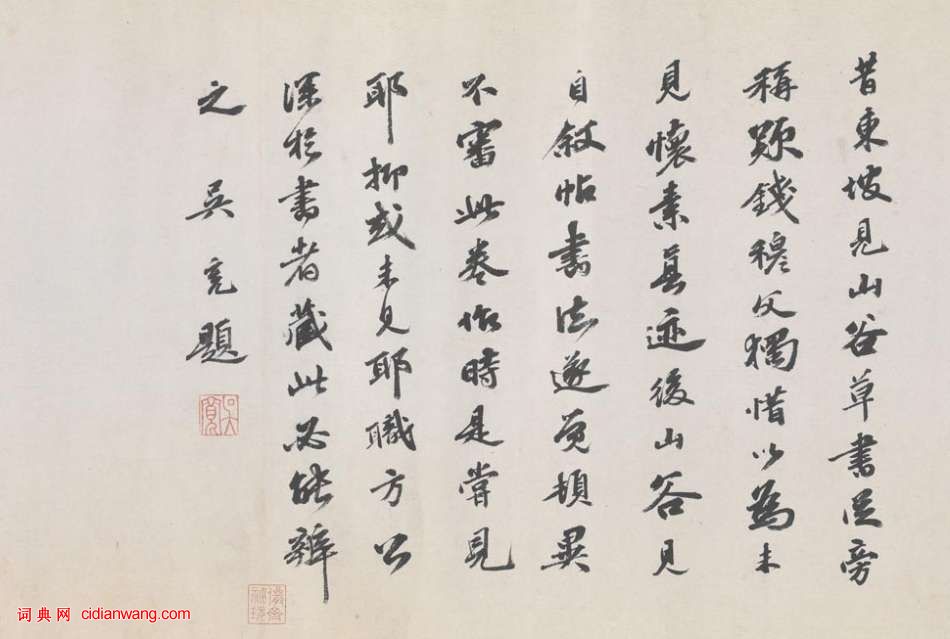 昔東坡見山谷草書從旁
稱歎錢穆父獨惜以為未
見懷素真迹後山谷見
自敘帖書法遂覺頓異
不審此卷作時是嘗見
耶抑或未見耶職方公
深於書者藏此必能辨
之 吳寬題
词典网 cidianwang.com